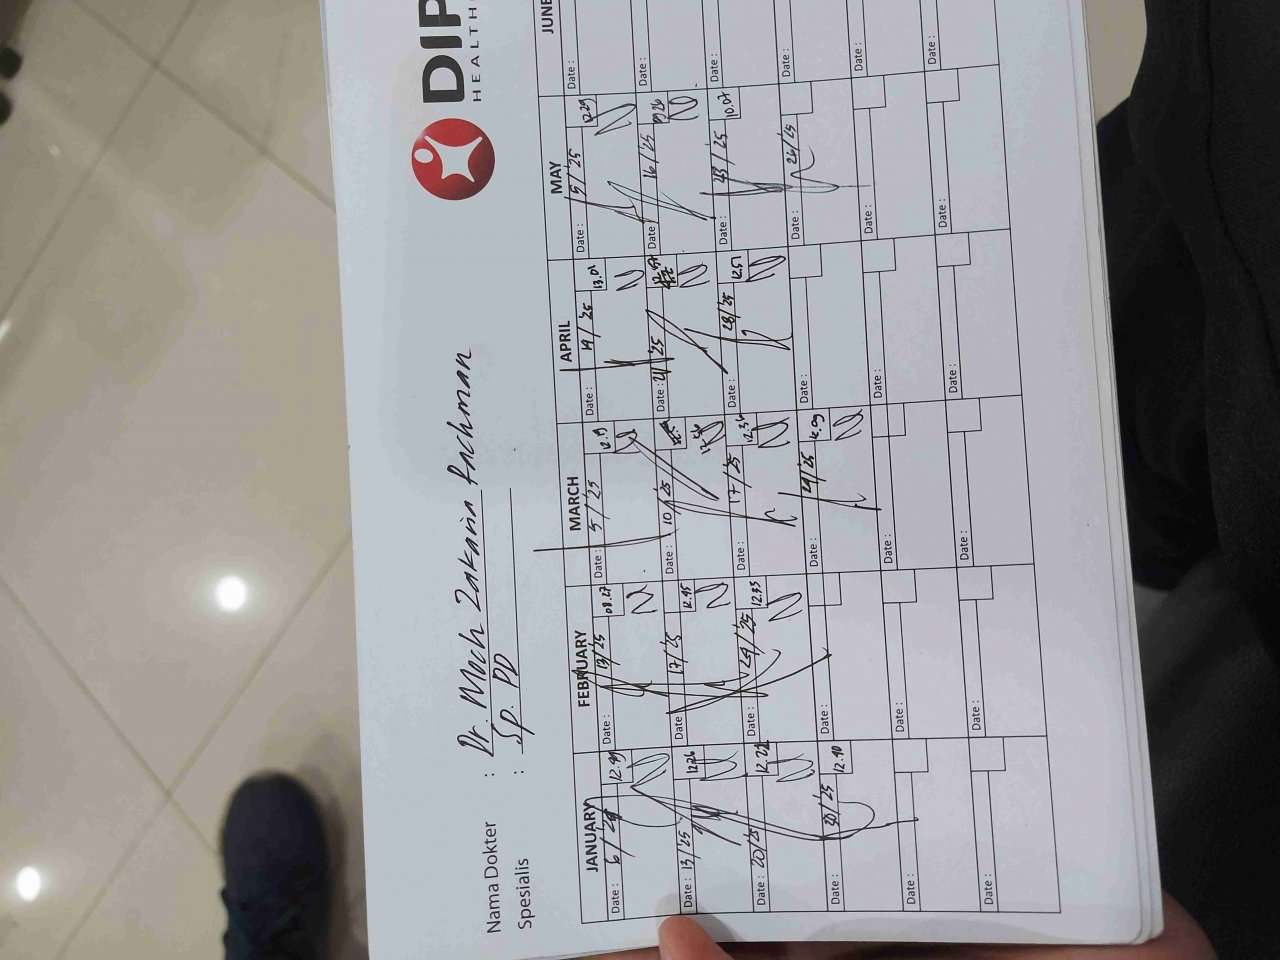 DIP
HEALTH
Nama Dokter : Dr. Much Zakaria Rachman
Spesialis : Sp. PD
JANUARY FEBRUARY MARCH APRIL MAY JUNE
Date : 6/25 12.49 Date : 13/25 08.27 Date : 5/25 12.19 Date : 14/25 13.01 Date : 5/25 12.29 Date :
Date : 13/25 12.26 Date : 17/25 12.45 Date : 10/25 12.56 Date : 21/25 Date : 16/25 Date :
Date : 20/25 12.22 Date : 24/25 12.35 Date : 17/25 12.36 Date : 28/25 12.51 Date : 23/25 10.07 Date :
Date : 30/25 12.40 Date : Date : 24/25 12.09 Date : Date : 26/25 Date :
Date : Date : Date : Date : Date : Date :
Date : Date : Date : Date : Date : Date :